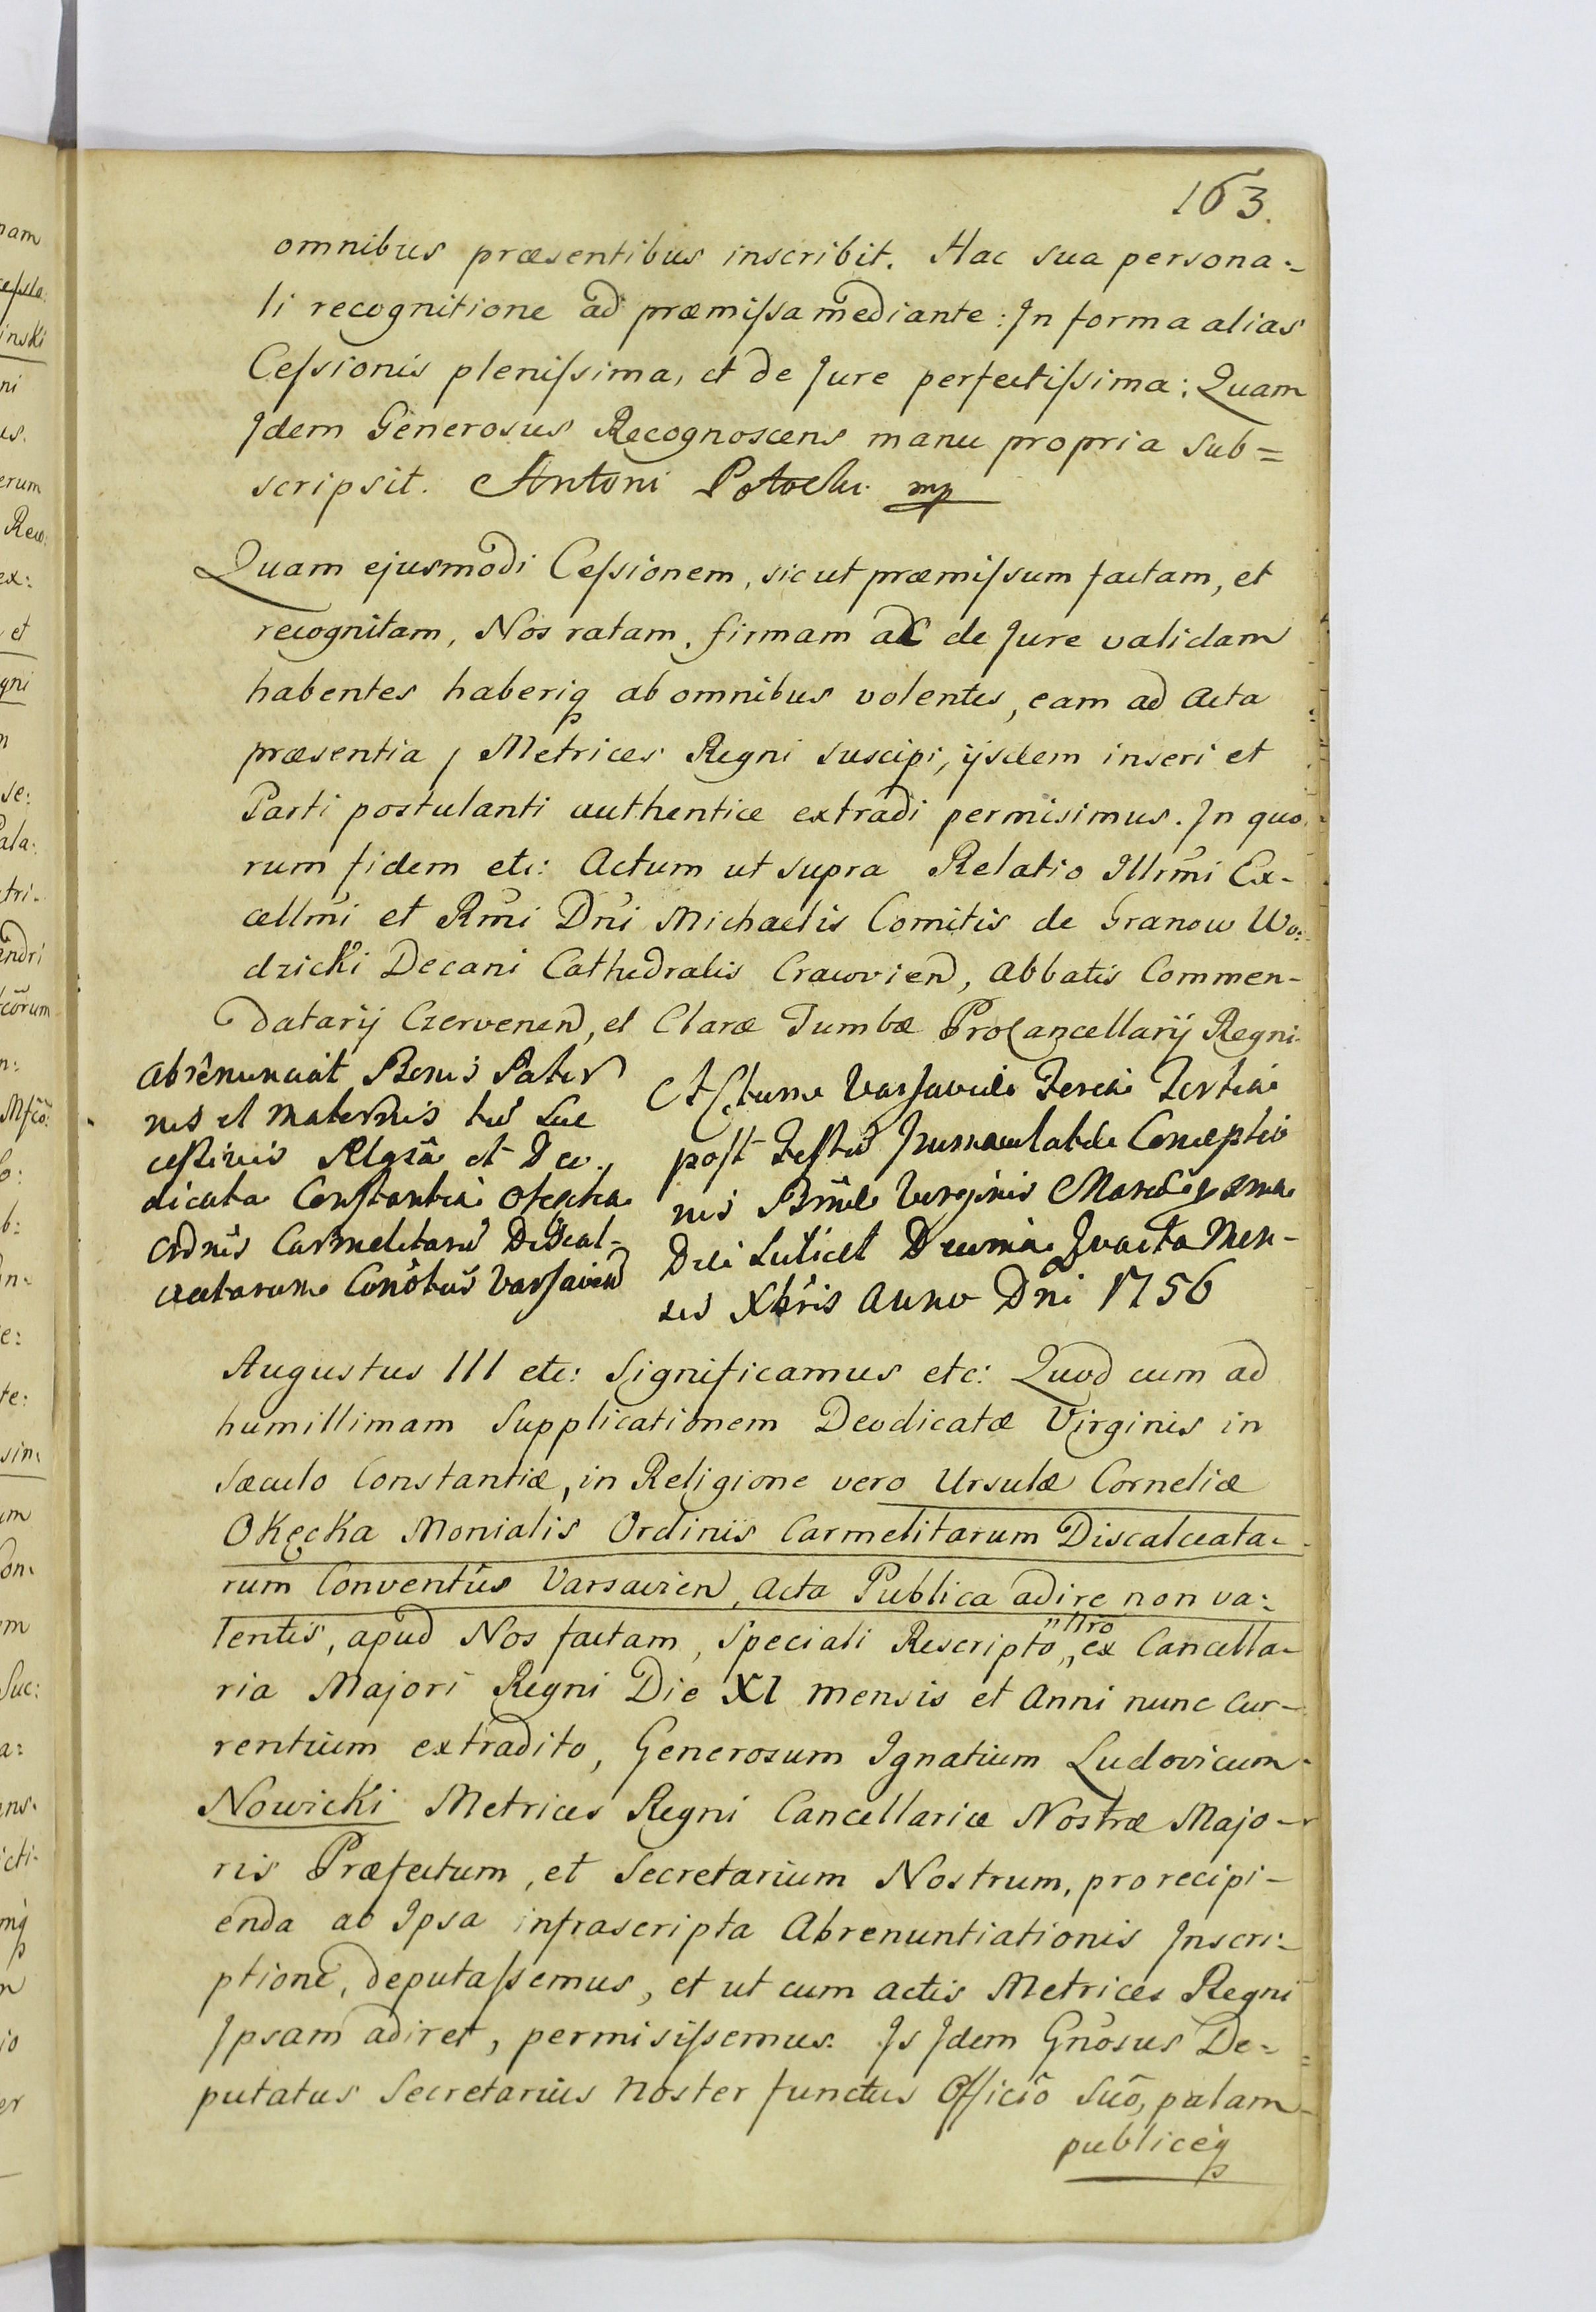 163.
omnibus præsentibus inscribit. Hac sua persona=
li recognitione ad præmissa mediante: In forma alias
Cessionis plenissima, et de Jure perfectissima: Quam
Idem Generosus Recognoscens manu propria sub=
scripsit. Antoni Potocki mp
Quam ejusmodi Cessionem, sicut præmissum factam, et
recognitam, Nos ratam, firmam ac de Jure validam
habentes haberiq ab omnibus volentes, eam ad Acta
præsentia, Metrices Regni suscipi, ijsdem inseri et
Parti postulanti authentice extradi permisimus. In quo
rum fidem etc: Actum ut supra Relatio Illrmi Ex-
cellmi et Rmi Dni Michaelis Comitis de Granow Wo:
dzicki Decani Cathedralis Cracovien, Abbatis Commen-
datarij Czervenen, et Claræ Tumbæ ProCancellarij Regni.
Abrenunciat Bonis Pater
nis et maternis tu Suc
cessivis Rlgsa et Deo,
dicata Constantia Okęcka
Ordnis Carmelitaru Discal-
ceatarum Conotus Varsavien
Actum Varsaviæ Feria Tertia
post Festu Immaculatæ Conceptio
nis Bmæ Virginis Mariæ
Die scilicet Decima Quarta Men-
sis Xbris Anno Dni 1756
Augustus III etc: Significamus etc: Quod cum ad
humillimam Supplicationem Deodicatæ Virginis in
Sæculo Constantiæ, in Religione vero Ursulæ Corneliæ
Okęcka Monialis Ordinis Carmelitarum Discalceata-
rum Conventûs Varsavien, Acta Publica adire non va:
lentis, apud Nos factam, Speciali Rescripto "nro" ex Cancella-
ria Majori Regni Die XI mensis et Anni nunc cur-
rentium extradito, Generosum Ignatium Ludovicum
Nowicki Metrices Regni Cancellariæ Nostræ Majo-
ris Præfectum, et Secretarium Nostrum, pro recipi-
enda ab Ipsa infrascripta Abrenuntiationis Inscri-
ptione, deputassemus, et ut cum actis Metrices Regni
Ipsam adiret, permisissemus. Is Idem Gnosus De-
putatus Secretarius noster functus Officio Suo, palam
publiceq